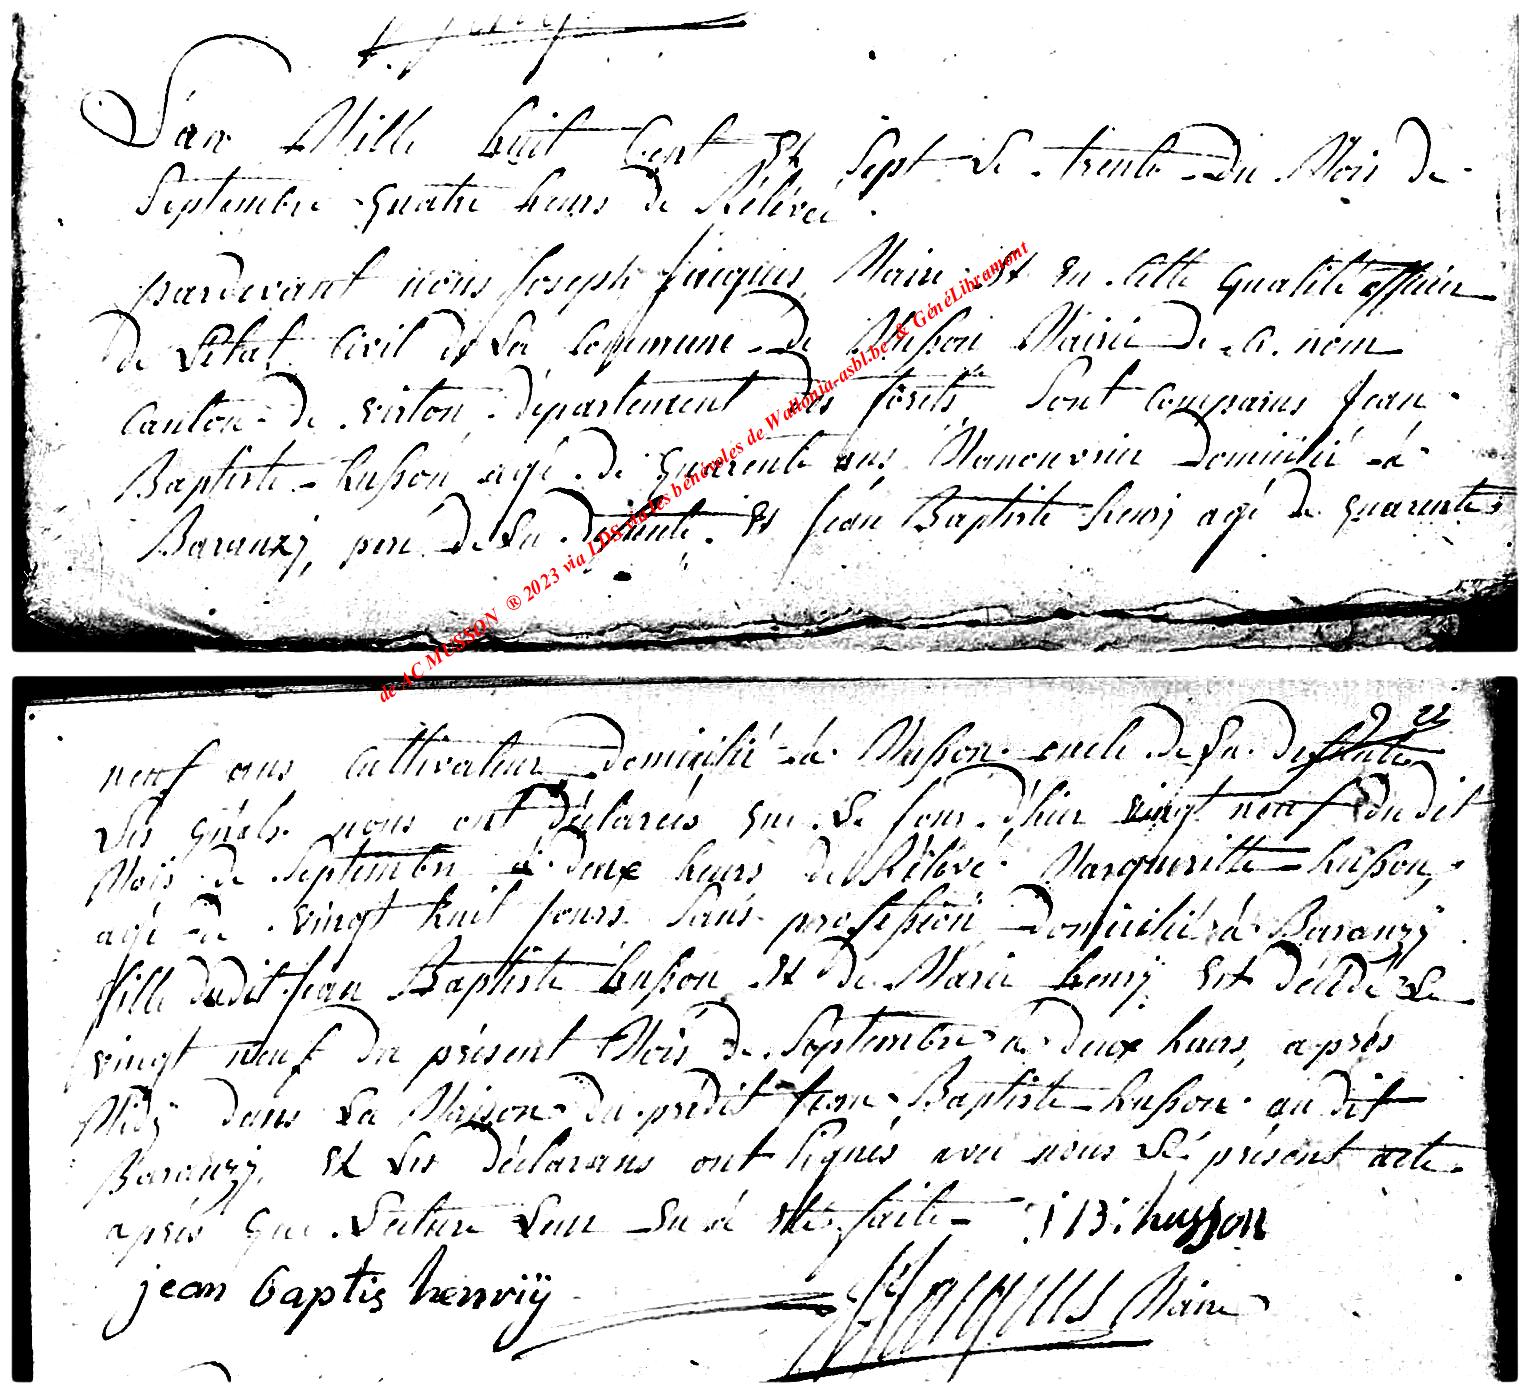 L'an Mille huit Cent Et Sept Le trente du Mois de
Septembre quatre heurs de Rélévée.
pardevant nous Joseph Jacques Maire Et En cette qualité officier
de L'état Civil de La Commune de Musson Mairie de ce nom
Canton de virton département des forêts Sont Comparus Jean
Baptiste husson agé de quarente ans Manouvrier domicilié à
Baranzy, peré de La defunte Et Jean Baptiste henrÿ agé de quarente
22
neuf ans Cultivateur domicilié à Musson oncle de La defunte
Les quels nous ont déclarés que Le Jour d'hier vingt neuf du dit
Mois de Septembre à deux heurs de Rélévé Margueritte husson,
agé de vingt huit Jours Sans profession domicilié à Baranzÿ
fille dudit Jean Baptiste husson Et de Marie henrÿ Est décédé Le
vingt neuf du présent Mois de Septembre à deux heurs, après
Midÿ dans La Maison du prédit Jean Baptiste husson audit
Baranzÿ, Et Les déclarans ont signés avec nous Le présent acte
après que Lecture Leur En a été faite J:B: husson
jean baptis henriÿ JJacques Maire
de AC MUSSON ® 2023 via LDS via les bénévoles de Wallonia-asbl.be & GénéLibramont